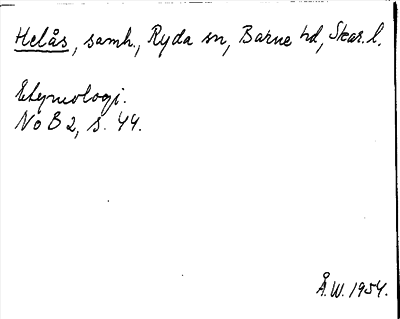 Helås, samh., Ryda sn, Barne hd, Skar. l.
Etymologi.
NoB 2, s. 44.
Å.W. 1954.